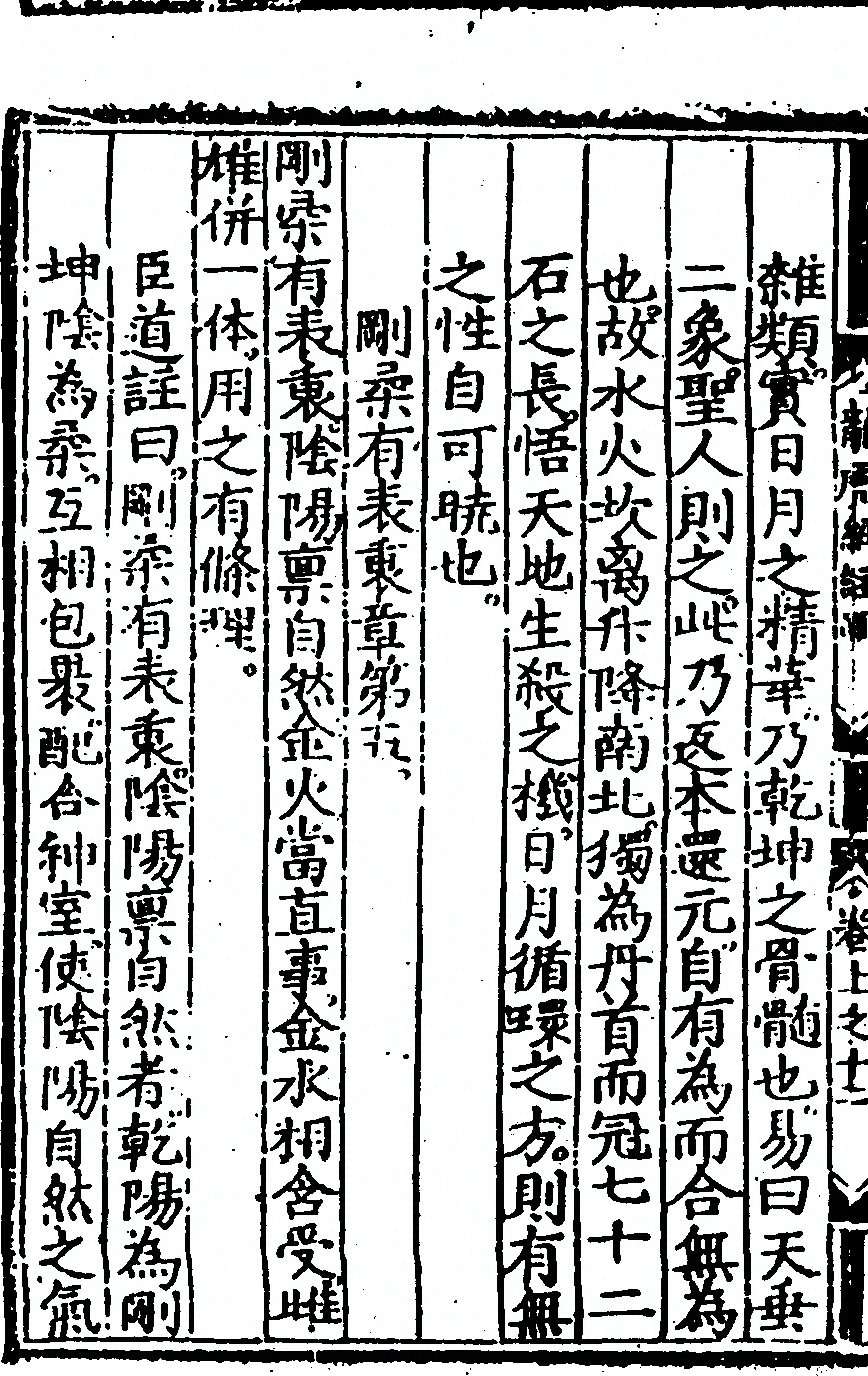 龍虎經註
卷上之十二
雜類實日月之精華乃乾坤之骨髓也易曰天垂
二象聖人則之此乃返本還元自有為而合無為
也故水火坎离升降南北獨為丹首而冠七十二
石之長悟天地生殺之機日月循環之方則有無
之性自可曉也
剛柔有表裏章第五
剛柔有表裏陰陽禀自然金火當直事金水相含受雌
雄併一体用之有條理
臣道註曰剛柔有表裏陰陽禀自然者乾陽為剛
坤陰為柔互相包褁配合神室使陰陽自然之氣